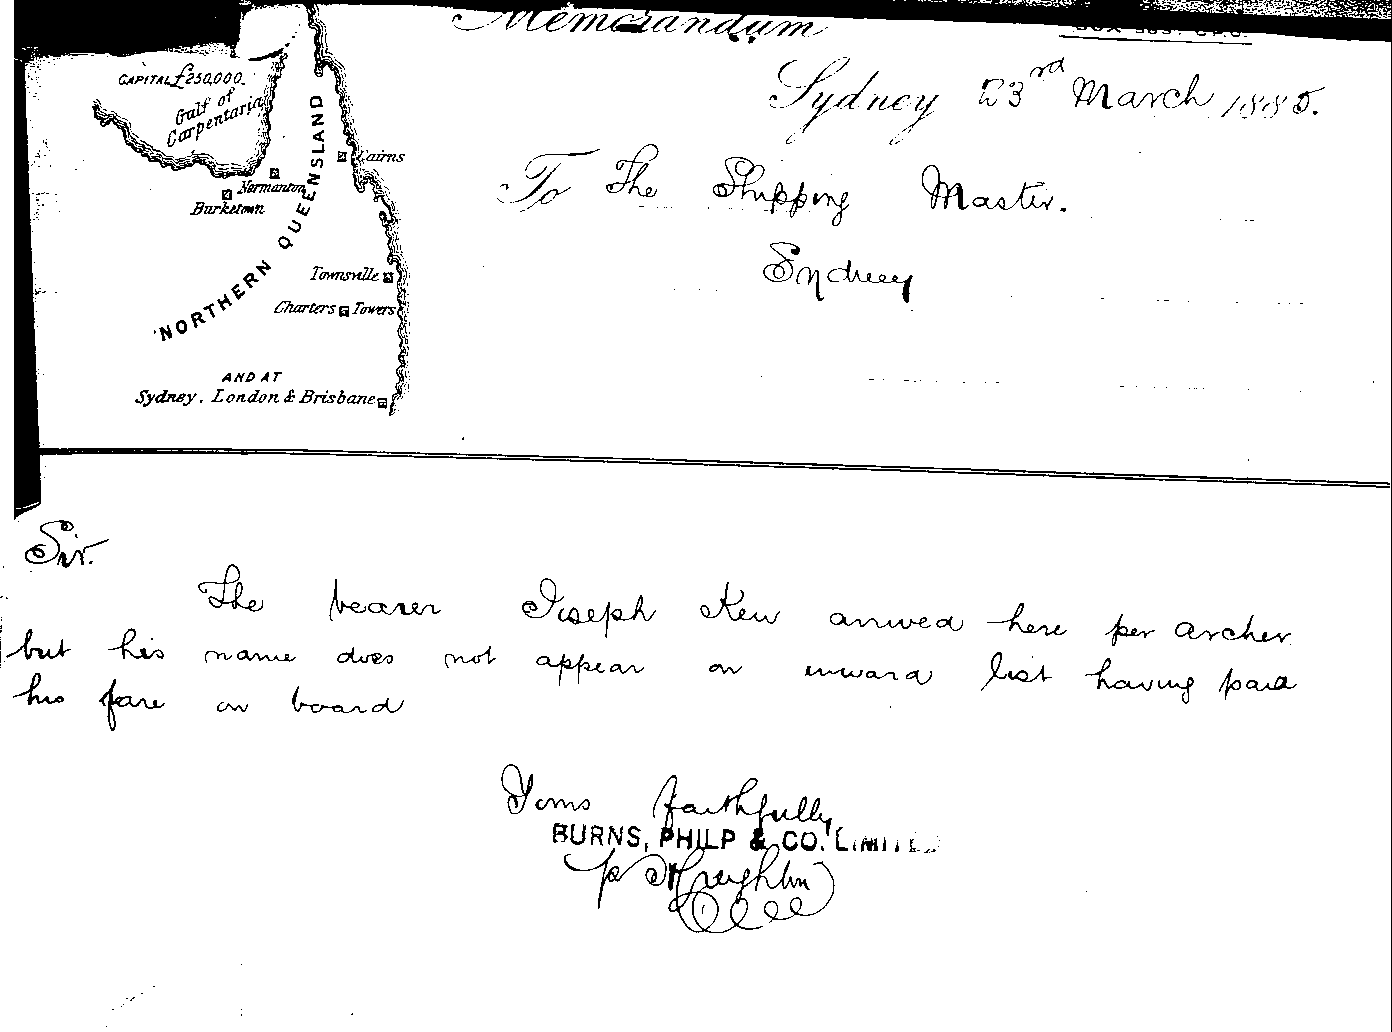 Memorandum
CAPITAL £250,000.
Gulf of
Carpentaria
Cairns
Normanton
Burketown
NORTHERN QUEENSLAND
Townsville
Charters Towers
AND AT
Sydney, London & Brisbane
Sydney 23rd March 1885.
To The Shipping Master.
Sydney
Sir.
The bearer Joseph Kew arrived here per Archer
but his name does not appear on inward list having paid
his fare on board
Yours faithfully
BURNS, PHILP & CO. LIMITED
p